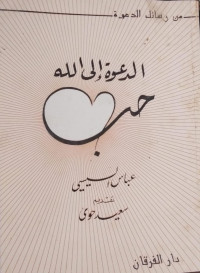 من رسائل الدعوة
الدعوة إلى الله
حب
عباس السيسي
تقديم
سعيد حوى
دار الفرقان